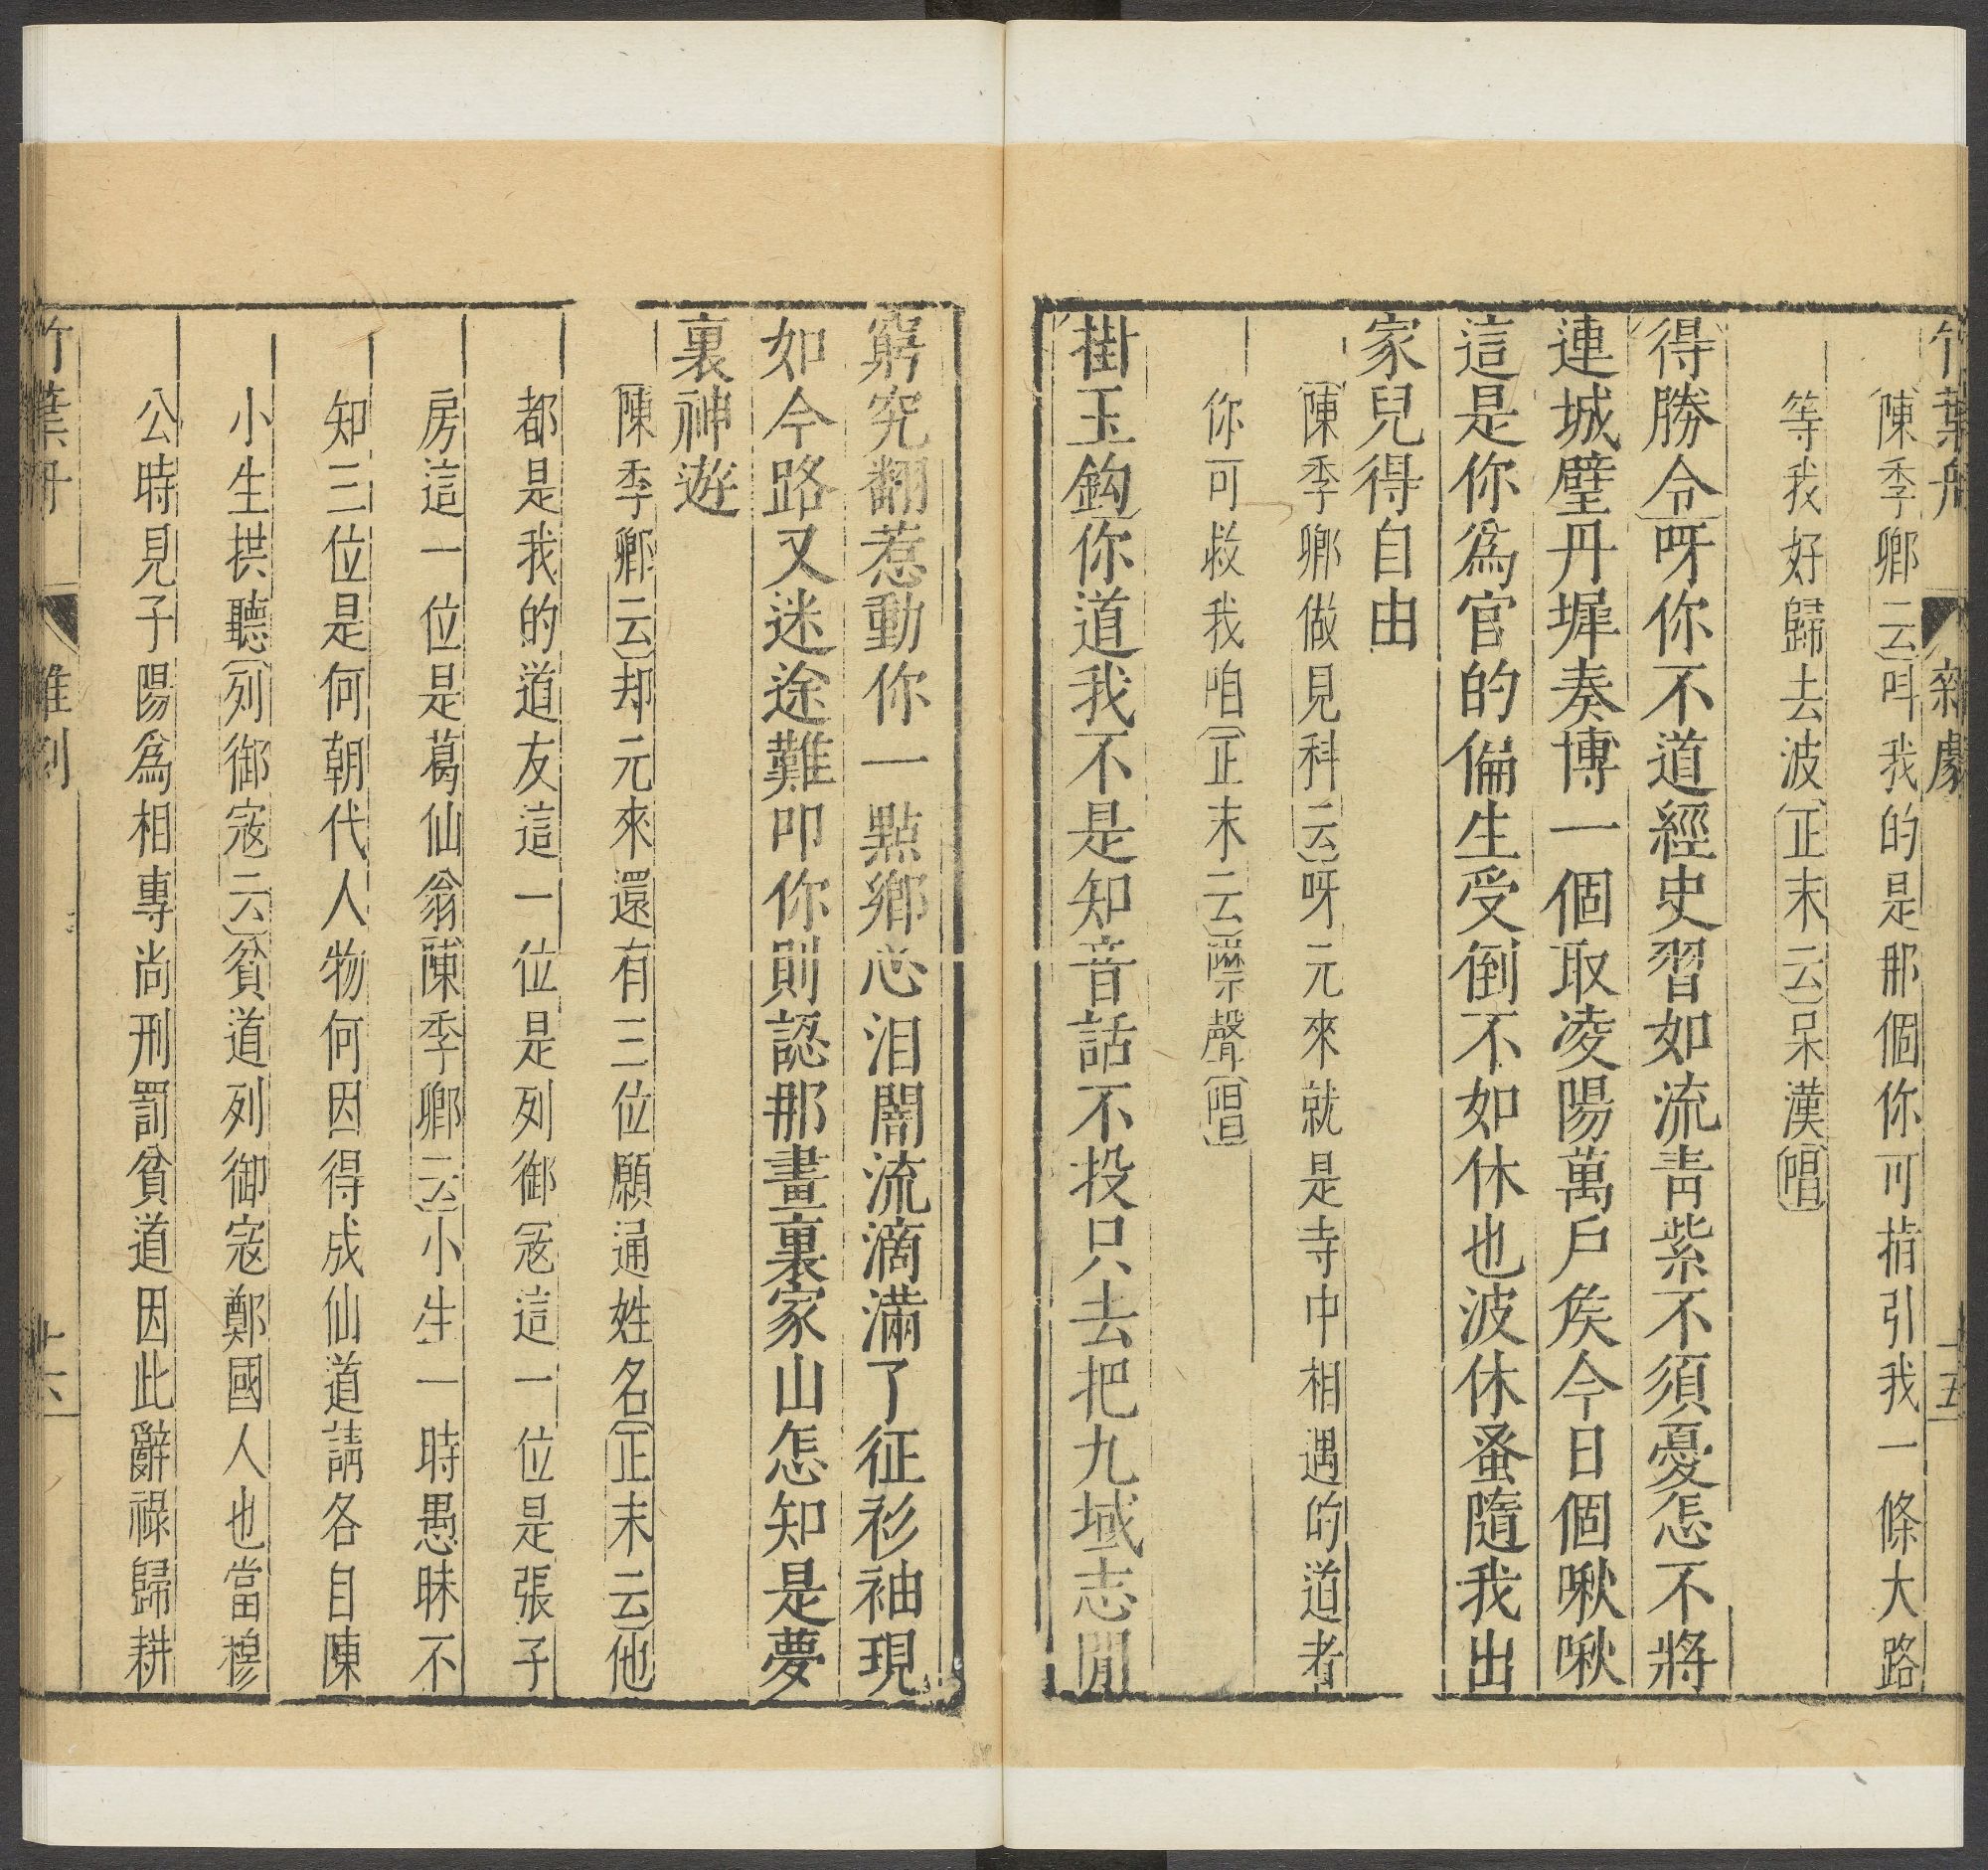 竹葉舟 雜劇 十五
(陳季卿云)呌我的是那個你可指引我一條大路
等我好歸去波(正末云)呆漢(唱)
(得勝令)呀你不道經史習如流靑紫不須憂怎不將
連城璧丹墀奏博一個取凌陽萬戶矦今日個啾啾
這是你爲官的偏生受倒不如休也波休蚤隨我出
家兒得自由
(陳季卿做見科云)呀元來就是寺中相遇的道者
你可救我咱(正末云)噤聲(唱)
(掛玉鈎)你道我不是知音話不投只去把九域志閒
窮究翻惹動你一點鄉心泪闇流滴滿了征衫袖現
如今路又迷途難叩你則認那畫裏家山怎知是夢
裏神遊
(陳季卿云)却元來還有三位願通姓名(正末云)他
都是我的道友這一位是列御寇這一位是張子
房這一位是葛仙翁(陳季卿云)小生一時愚昧不
知三位是何朝代人物何因得成仙道請各自陳
小生拱聽(列御寇云)貧道列御寇鄭國人也當穆
公時見子陽爲相專尚刑罰貧道因此辭祿歸耕
竹葉舟 雜劇 十六